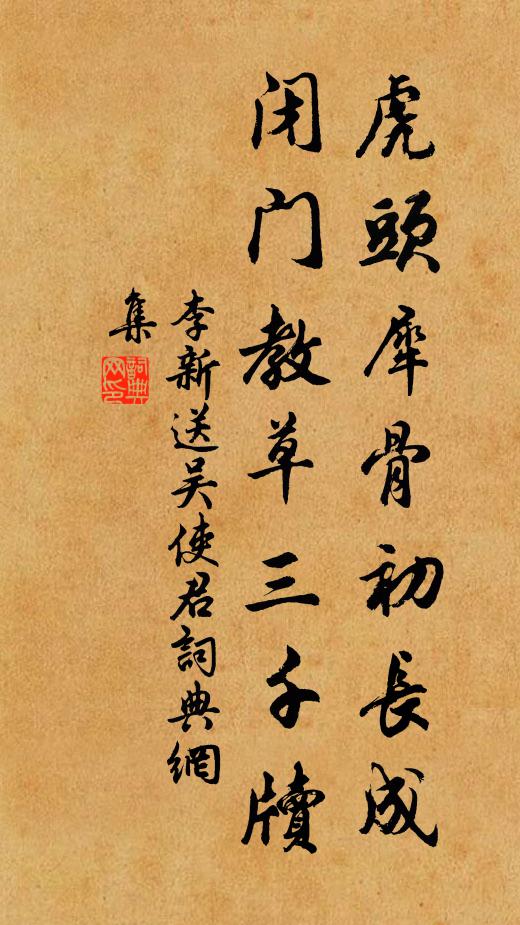 虎頭犀骨初長成
闭门教草三千牘
李新送吴使君詞典網
集
詞典网印